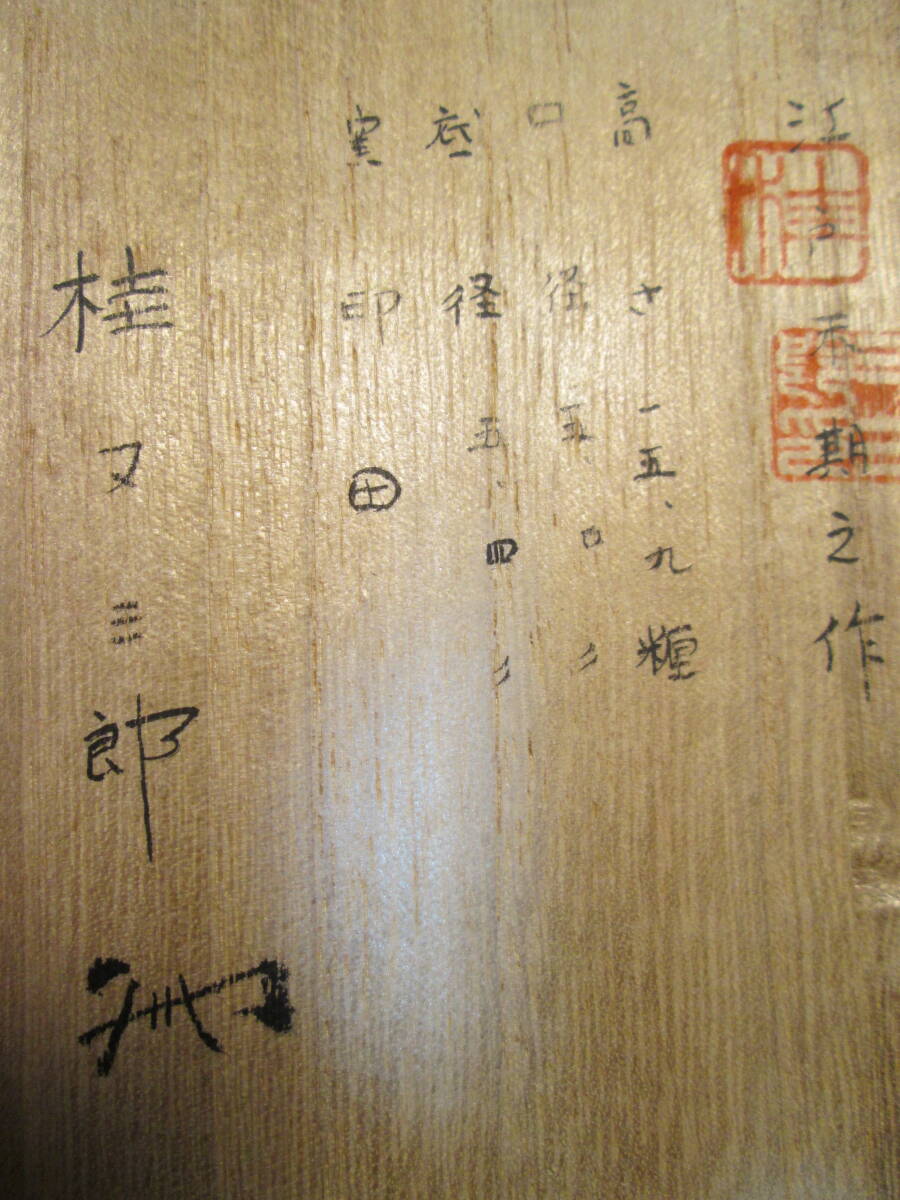 江戸末期之作
高さ 一五、九糎
口径 五、〇〃
底径 五、四〃
窯印 ㊉
桂又三郎